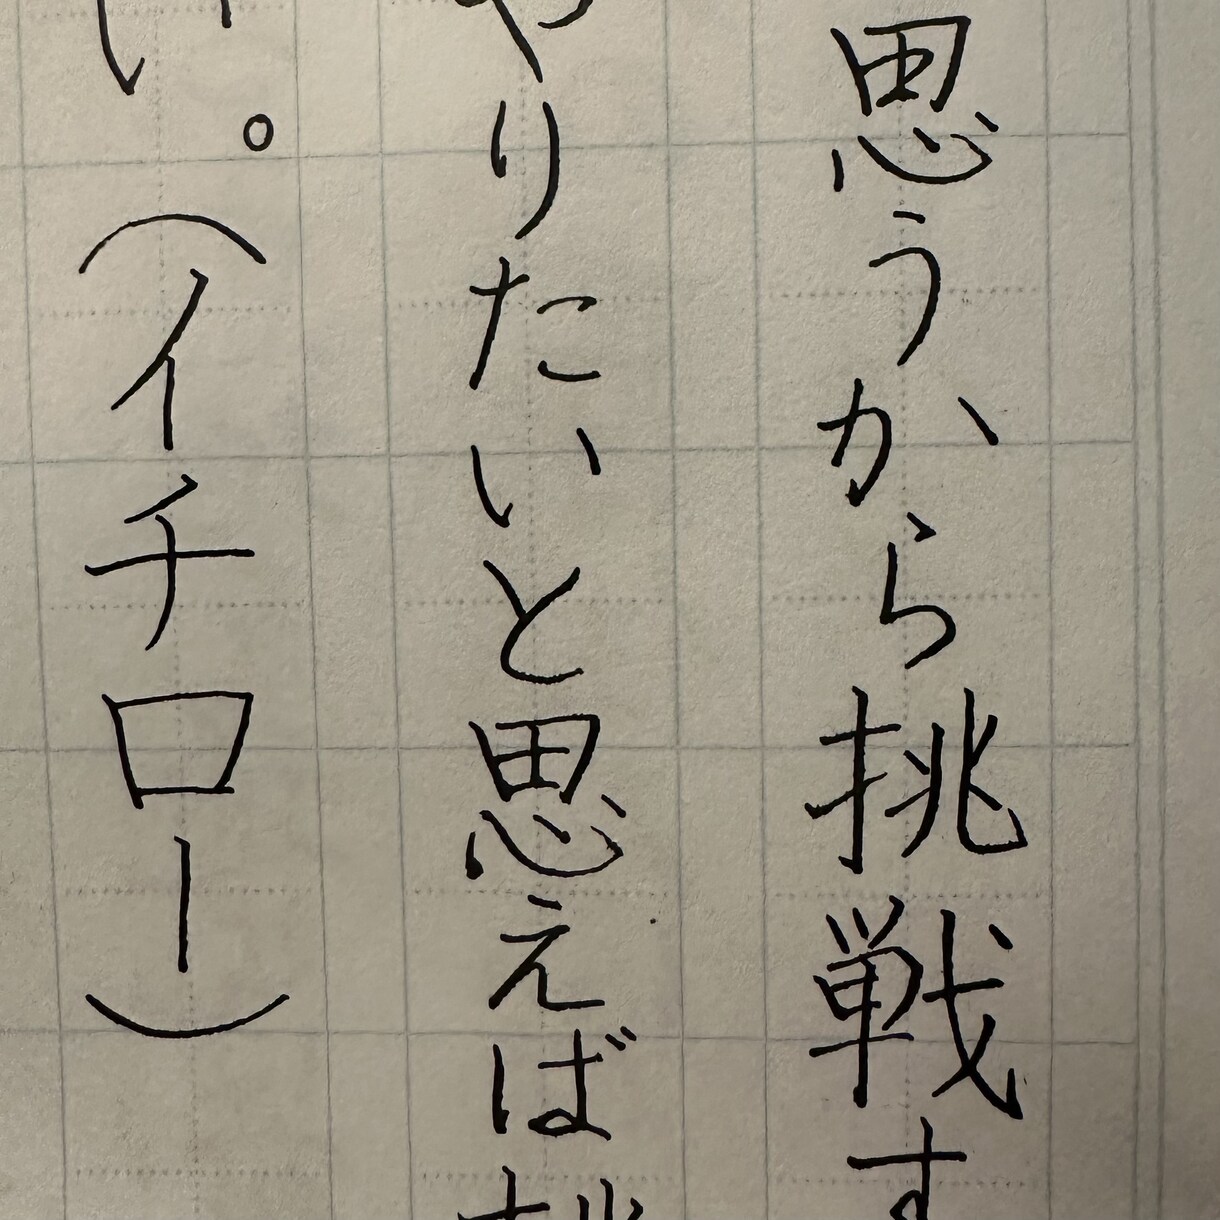 思うから挑戦す
やりたいと思えば挑
い。(イチロー)